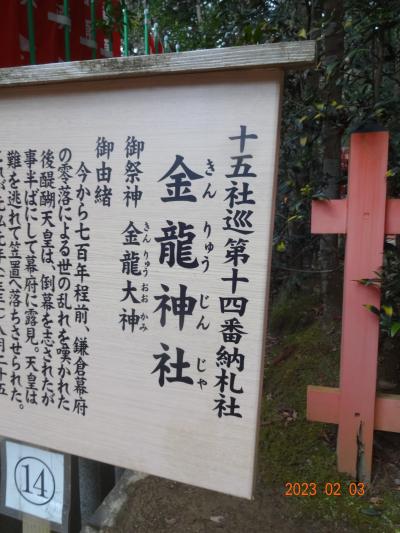 十五社巡第十四番納札社
金龍神社
きんりゅうじんじゃ
御祭神 金龍大神
きんりゅうおおかみ
御由緒
今から七百年程前、鎌倉幕府
の零落による世の乱れを嘆かれた
後醍醐天皇は、倒幕を志されたが
事半ばにして幕府に露見。天皇は
難を逃れて笠置へ落ちさせられた。
⑭
2023 02 03